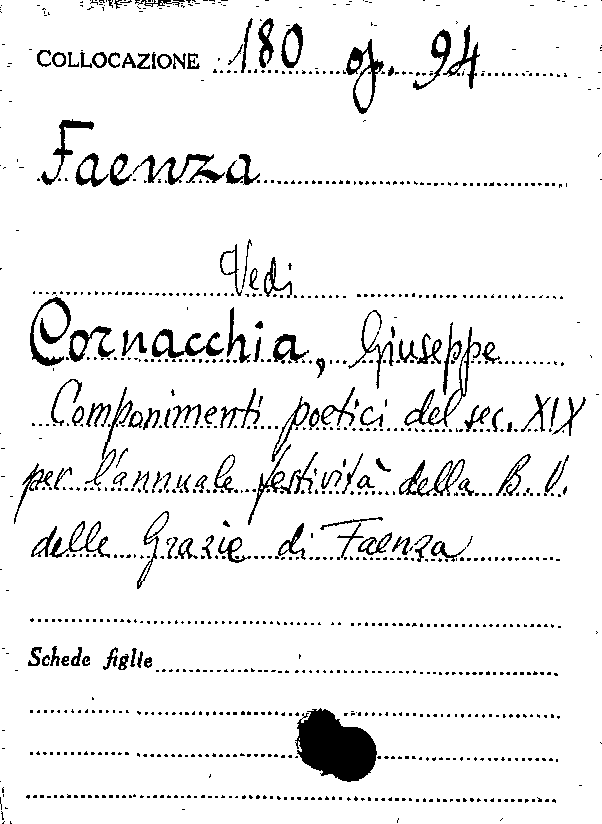 COLLOCAZIONE 180 op. 94
Faenza
Vedi
Cornacchia, Giuseppe
Componimenti poetici del sec. XIX
per l'annuale festività della B. V.
delle Grazie di Faenza
Schede figlie